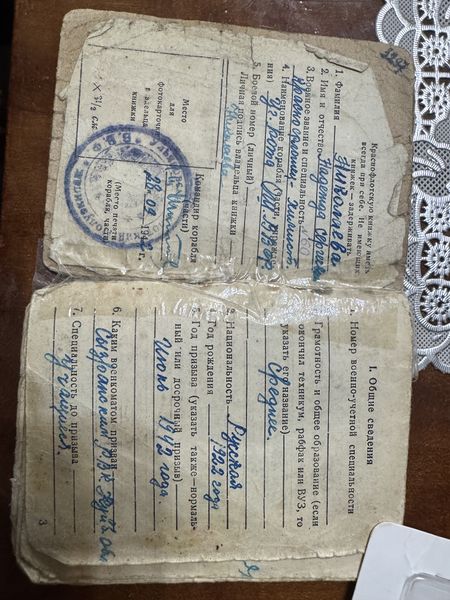 Краснофлотскую книжку иметь
всегда при себе. Не имеющих
книжек — задерживать.
1. Фамилия Николаева
2. Имя и отчество Надежда Сергеевна
3. Военное звание и специальность
краснофлотец-химист
4. Наименование корабля (части, соединения)
рота
5. Боевой номер (личный)
Личная подпись владельца книжки
Николаева
Место
для
фотокарточки
владельца
книжки
Командир корабля
(части)
28.09 194 г.
(Место печати
корабля, части)
I. Общие сведения
1. Номер военно-учетной специальности
Грамотность и общее образование (если
окончил техникум, рабфак или ВУЗ, то
указать его название)
Среднее
3. Национальность Русская
Год рождения 1922 года
5. Год призыва (указать также—нормаль-
ный или досрочный призыв)
Июнь 1942 года.
6. Каким военкоматом призван
Сызранский РВК Куйб. обл
7. Специальность до призыва
учащаяся
3